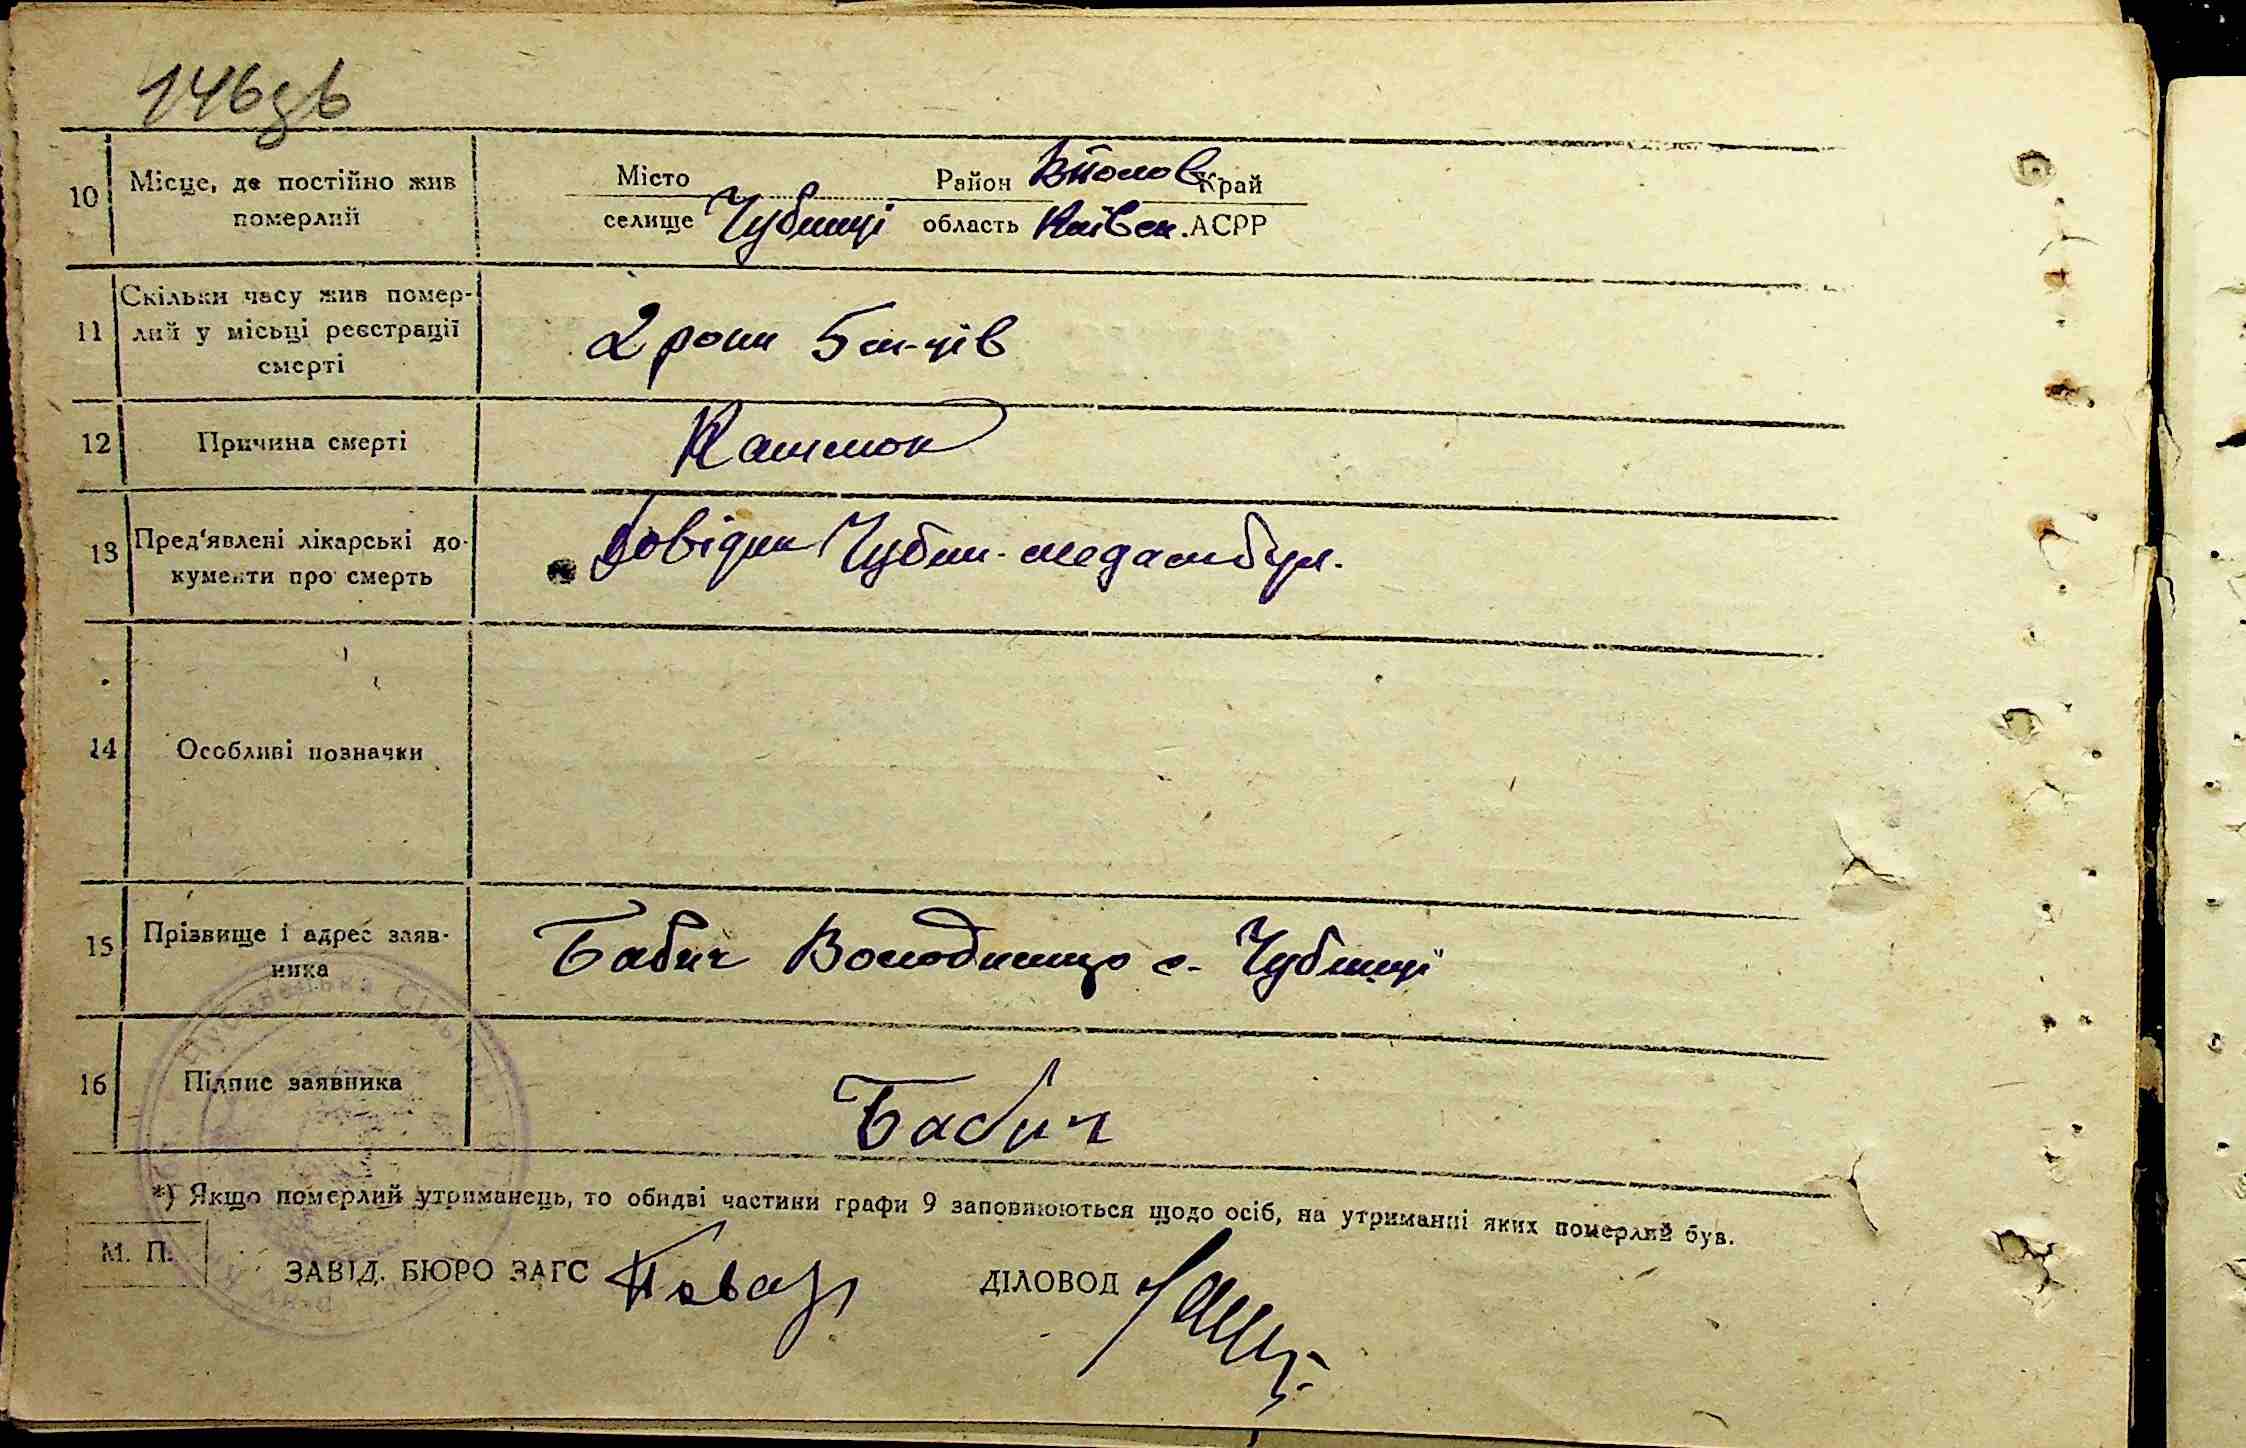 146зв
10 Місце, де постійно жив померлий
Місто Район Білоц Край
селище Чубинці область Київськ. АСРР
11 Скільки часу жив помер-
лий у місьці реєстрації
смерті
2 роки 5 м-ців
12 Причина смерті Кашлюк
13 Пред'явлені лікарські до-
кументи про смерть
Довідка Чубин. медамбул.
14 Особливі позначки
15 Прізвище і адрес заяв-
ника
Бабич Володимир с. Чубинці
16 Підпис заявника Бабич
*) Якщо померлий утриманець, то обидві частини графи 9 заповнюються щодо осіб, на утриманні яких померлий був.
М. П.
ЗАВІД. БЮРО ЗАГС ДІЛОВОД